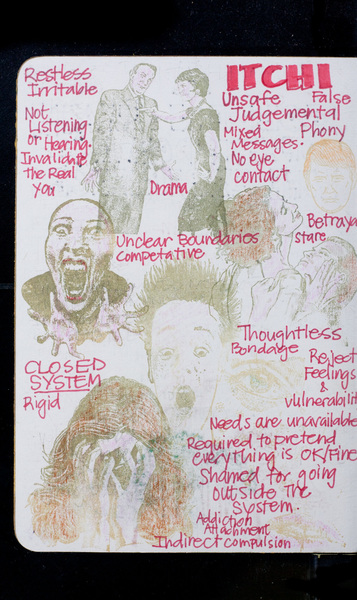 Restless
Irritable
Not
Listening.
or Hearing.
Invalidate
the Real
You
Drama
ITCHI
Unsafe False
Judgemental
Mixed Phony
Messages.
No eye
contact
Betraya
stare
Unclear Boundaries
competative
CLOSED
SYSTEM
Rigid
Thoughtless
Bondage
Reject
Feelings
&
vulnerabilit
Needs are unavailable
Required to pretend
everything is OK/Fine
Shamed for going
outside the
System.
Addiction
Attachment
Indirect compulsion